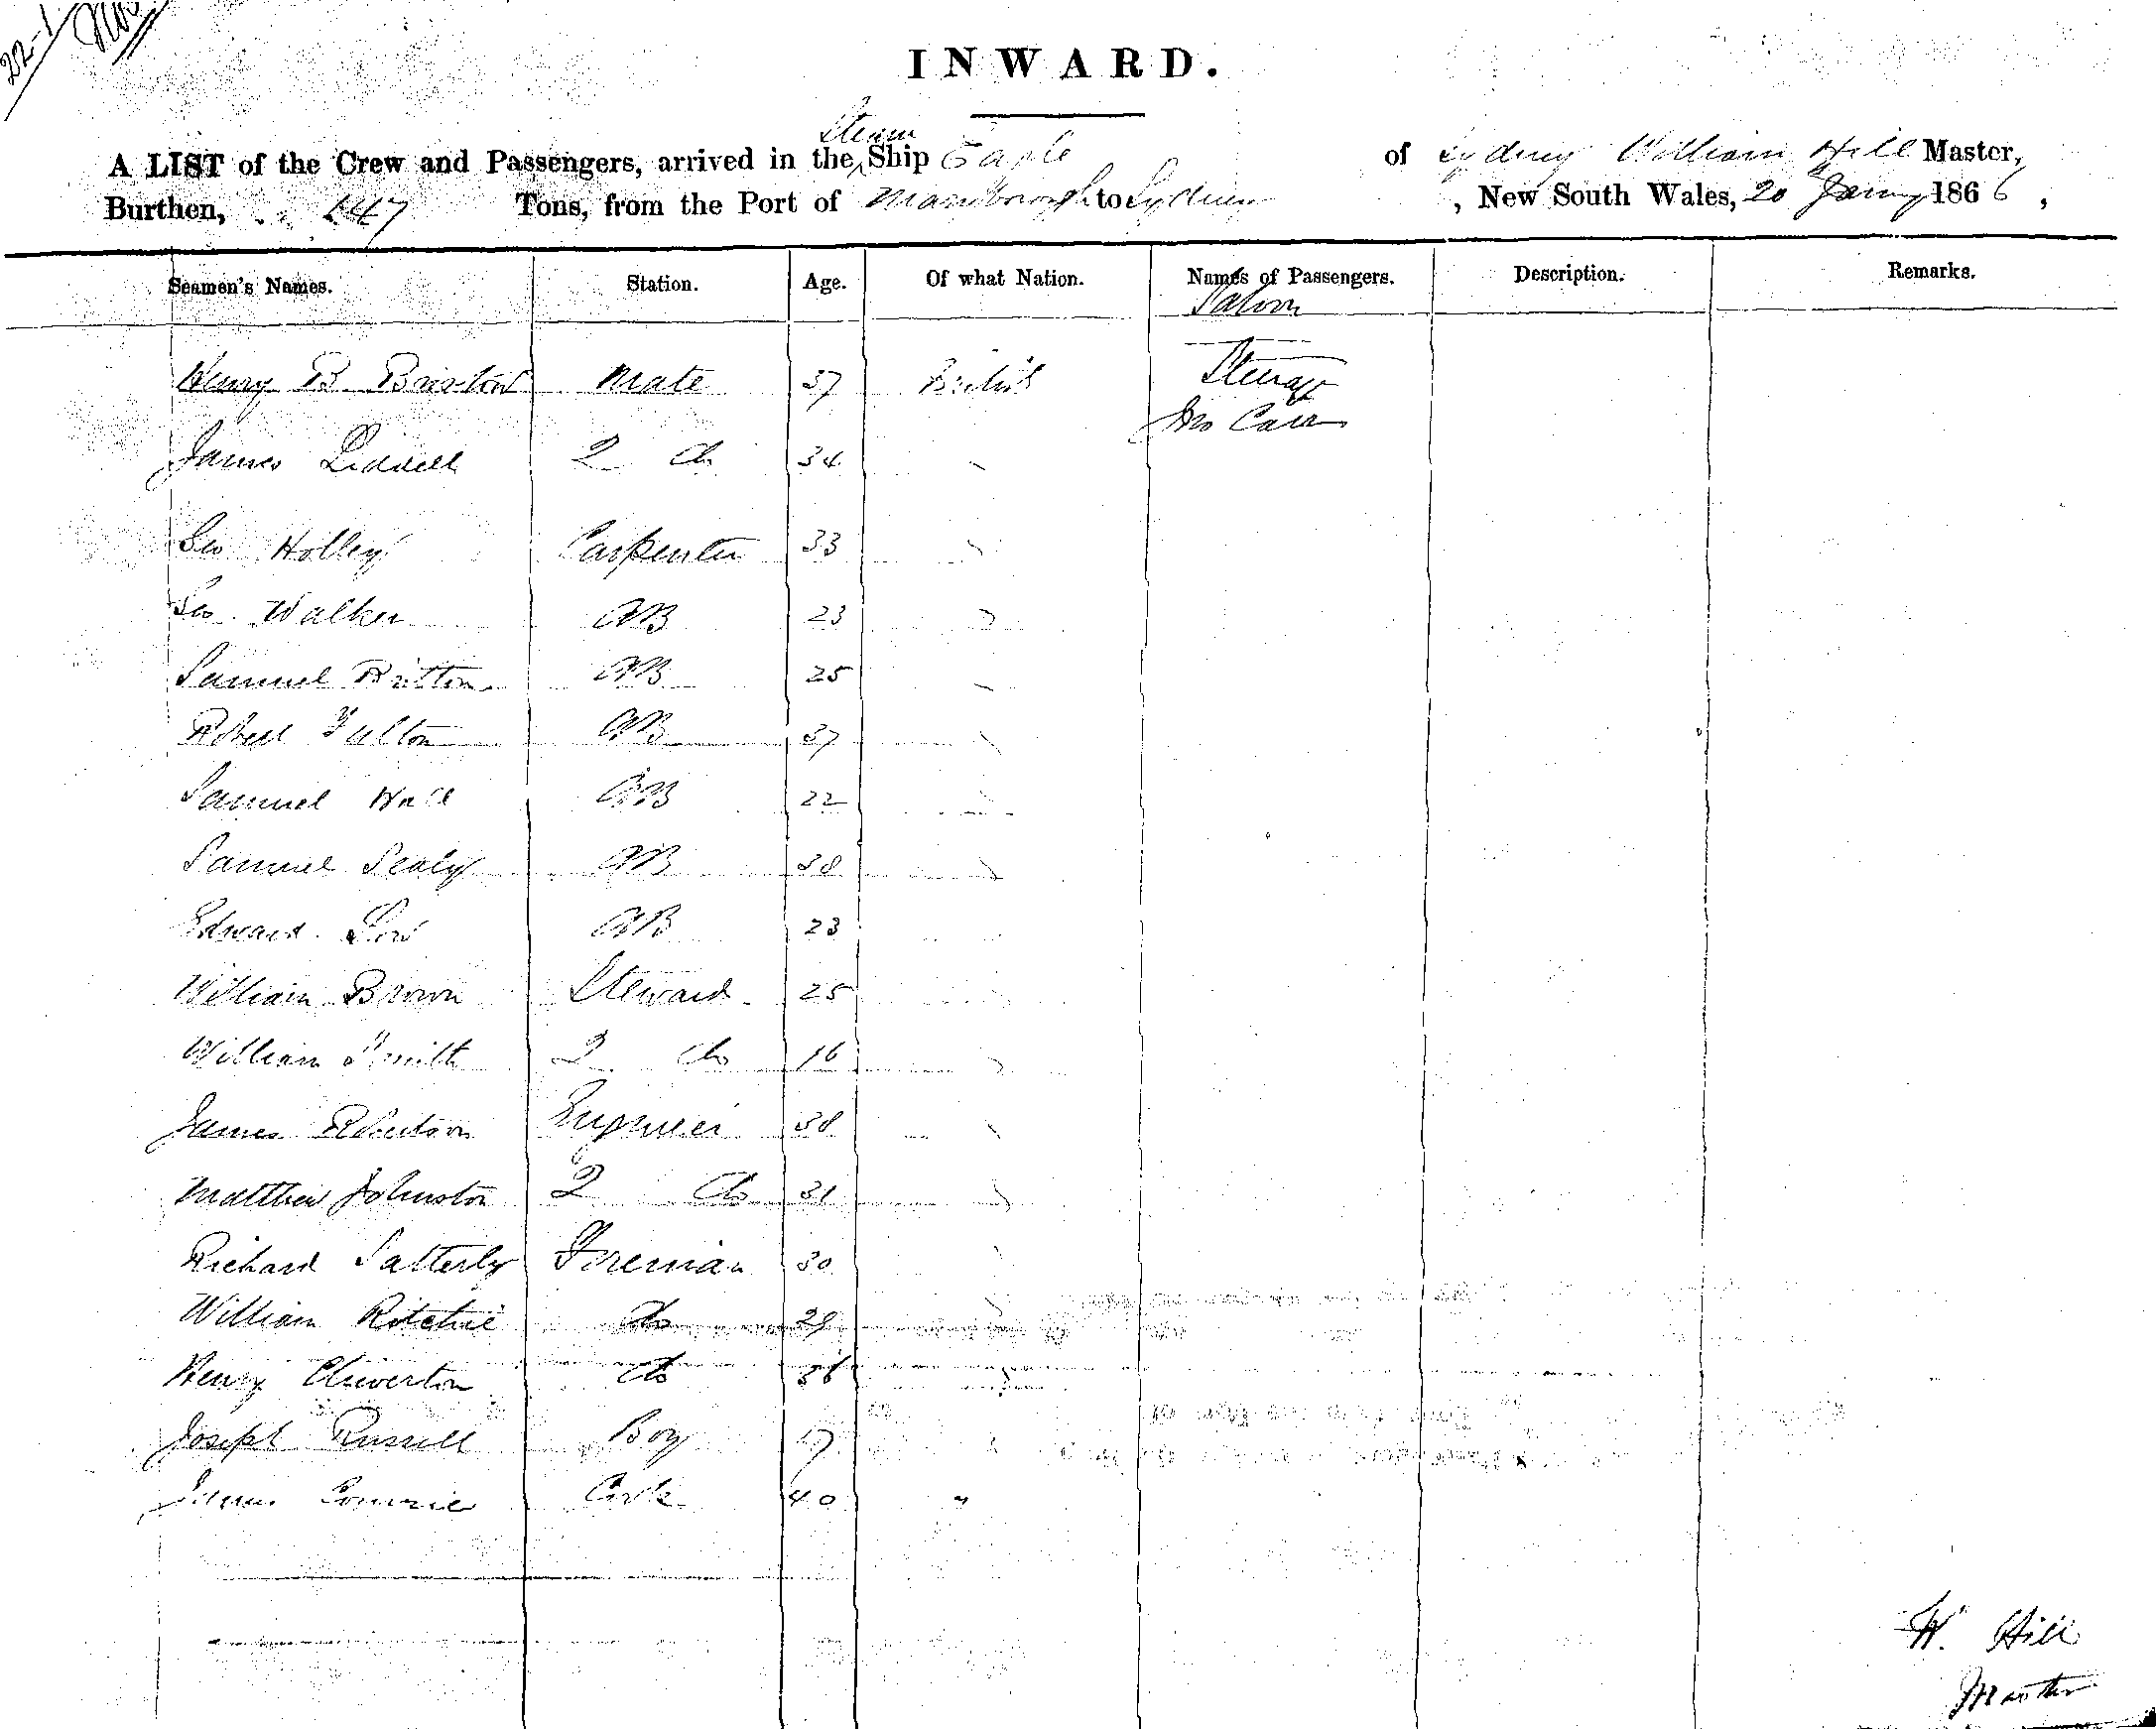 22-1
INWARD.
Steam
A LIST of the Crew and Passengers, arrived in the Ship Eagle of Sydney William Hill Master,
Burthen, 147 Tons, from the Port of Maryborough to Sydney, New South Wales, 20 Jany 1866,
Seamen's Names. Station. Age. Of what Nation. Names of Passengers. Description. Remarks.
Saloon
Henry B Bristow Mate 37 British Steerage
Jno Carr
James Liddell 2 do 34 "
Geo Holley Carpenter 33 "
Geo Walker AB 23 "
Samuel Britton AB 25 "
Robert Fulton AB 37 "
Samuel Hall AB 22 "
Samuel Sealy AB 38 "
Edward AB 23 "
William Brown Steward 25 "
William Smith 2 do 16 "
James Robertson Engineer 38 "
Matthew Johnston 2 do 31 "
Richard Satterly Foreman 30 "
William Ritchie do 29 "
Henry Cheverton do 36
Joseph Russell Boy 17 "
James Cook 40 "
W. Hill
Master